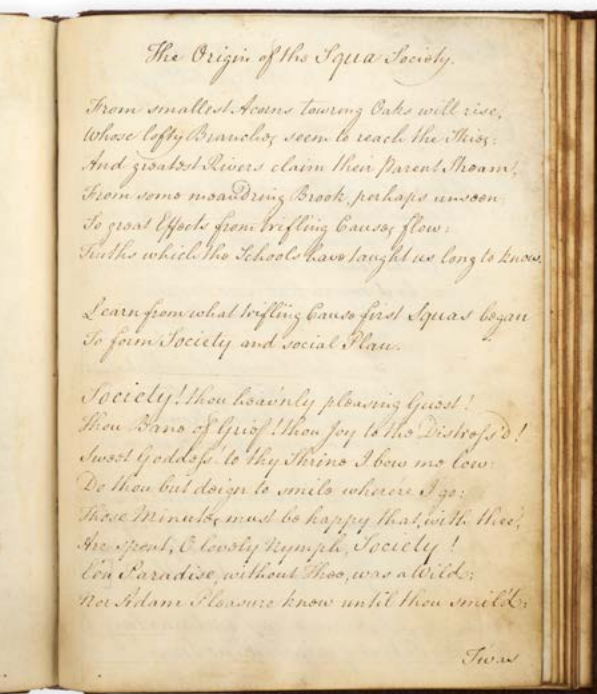 The Origin of the Squa Society.
From smallest Acorns towring Oaks will rise,
Whose lofty Branches seem to reach the Skies:
And greatest Rivers claim their Parent Stream,
From some meandring Brook, perhaps unseen
So great Effects from trifling Causes flow:
Truths which the Schools have taught us long to know.
Learn from what trifling Cause first Squas began
To form Society and social Plan.
Society! thou heav'nly pleasing Guest!
Thou Bane of Grief! thou Joy to the Distress'd!
Sweet Goddess! to thy Shrine I bow me low:
Do thou but deign to smile where'er I go:
Those Minutes must be happy that, with thee,
Are spent, O lovely Nymph, Society!
Een Paradise, without Thee, was a Wild;
Nor Adam Pleasure knew until thou smil'd:
Twas